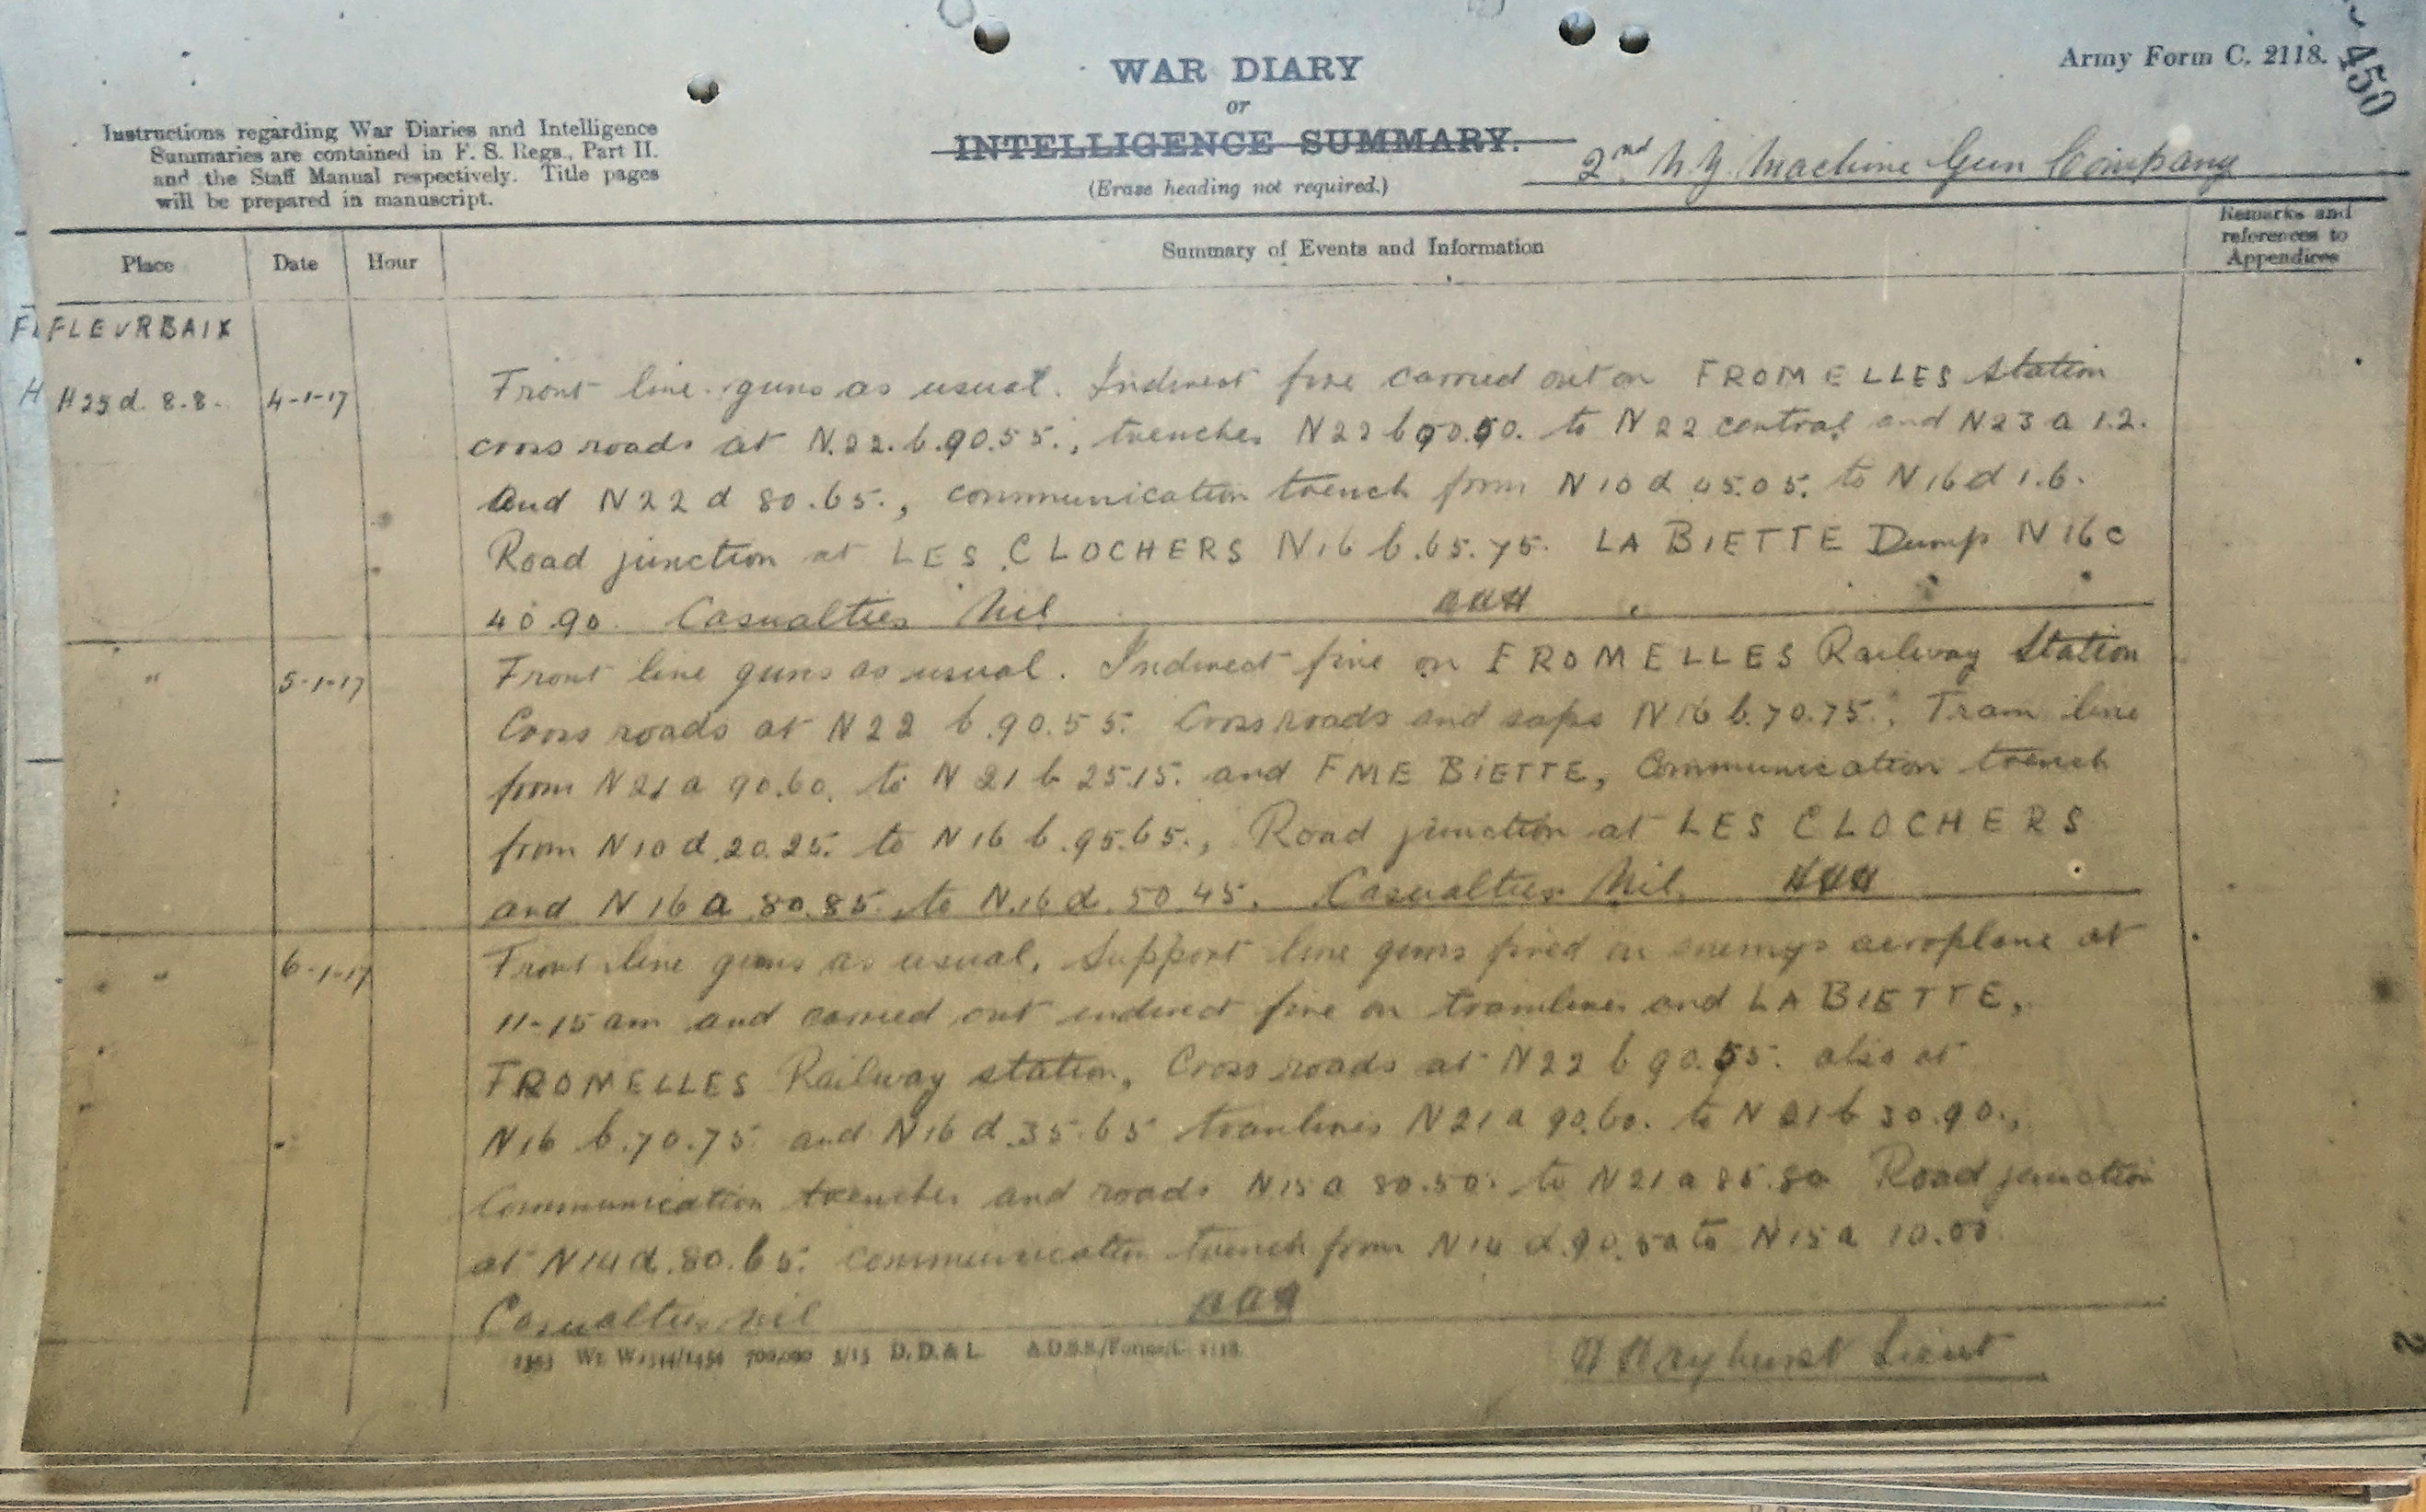 Army Form C. 2118.
450
WAR DIARY
or
INTELLIGENCE SUMMARY.
(Erase heading not required.)
Instructions regarding War Diaries and Intelligence
Summaries are contained in F. S. Regs., Part II.
and the Staff Manual respectively. Title pages
will be prepared in manuscript.
2nd N.Z. Machine Gun Company
Place Date Hour Summary of Events and Information Remarks and references to Appendices
FLEURBAIX
H25d. 8.8. 4-1-17 Front line guns as usual. Indirect fire carried out on FROMELLES Station
cross roads at N.22.b.90.55., trenches N22 b to N22 central and N23 a 1.2.
and N22 d 80.65., communication trench from N10 d 45.05. to N16d 1.6.
Road junction at LES CLOCHERS N16 b.65.75. LA BIETTE Dump N16c
40.90. Casualties Nil
" 5-1-17 Front line guns as usual. Indirect fire on FROMELLES Railway Station
Cross roads at N22 b.90.55. Cross roads and saps N16 b.70.75., Tram line
from N21a 90.60. to N21 b 25.15. and FME BIETTE, Communication trench
from N10 d.20.25. to N16 b.95.65., Road junction at LES CLOCHERS
and N16 a 80.85. to N.16 d.50 45. Casualties Nil.
" 6-1-17 Front line guns as usual, Support line guns fired on enemys aeroplane at
11-15 am and carried out indirect fire on tramlines and LA BIETTE,
FROMELLES Railway station, Cross roads at N22 b 90.55. also at
N16 b.70.75 and N16 d.35.65 tramlines N21 a 90.60. to N21 b 30.90.,
Communication trenches and roads N15a 80.50. to N21 a 85.80 Road junction
at N14d.80.65. communication trench from N14 d.90.50 to N15a 10.00.
Casualties nil
D. D. & L. A.D.S.S./Forms/C. 2118.
Hayhurst Lieut
2